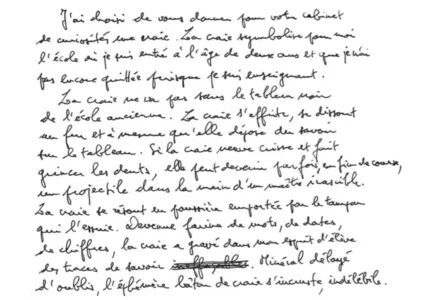 J'ai choisi de vous donner pour votre cabinet
de curiosités une craie. La craie symbolise pour moi
l'école où je suis entré à l'âge de deux ans et que je n'ai
pas encore quittée puisque je suis enseignant.
La craie ne va pas sans le tableau noir
de l'école ancienne. La craie s'effrite, se dissout
au fur et à mesure qu'elle dépose du savoir
sur le tableau. Si la craie neuve crisse et fait
grincer les dents, elle peut devenir parfois, en fin de course,
un projectile dans la main d'un maître irascible.
La craie se résout en poussière emportée par le tampon
qui l'essuie. Devenue farine de mots, de dates,
de chiffres, la craie a gravé dans mon esprit d'élève
des traces de savoir ineffaçables. Minéral délayé
d'oublis, l'éphémère bâton de craie s'incruste, indélébile.